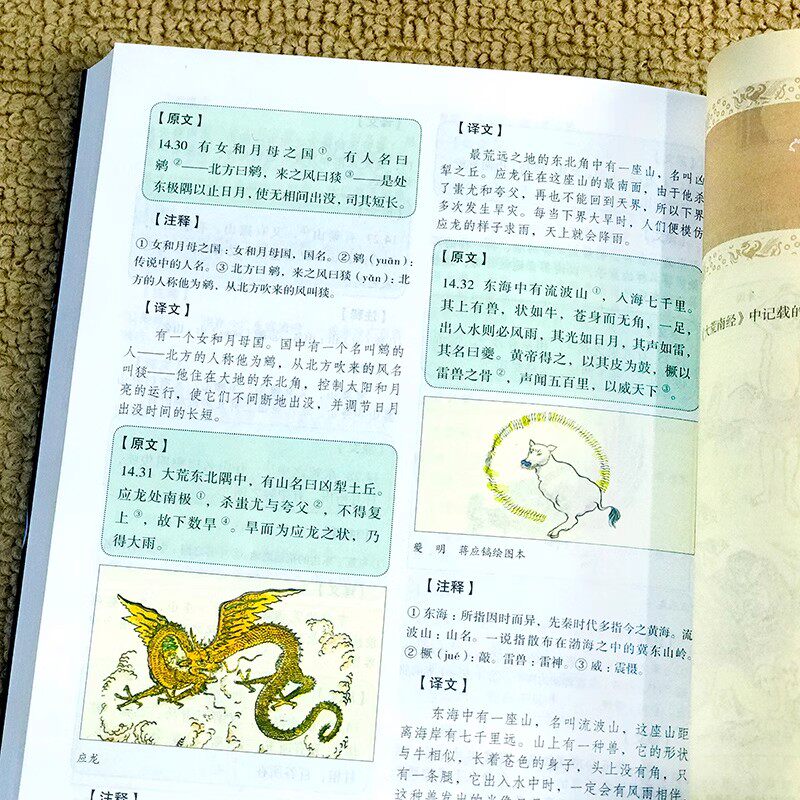 【原文】
14.30 有女和月母之国①。有人名曰
鹓②——北方曰鹓，来之风曰狻③——是处
东极隅以止日月，使无相间出没，司其短长。
【注释】
①女和月母之国：女和月母国，国名。②鹓（yuān）：
传说中的人名。③北方曰鹓，来之风曰狻（yǎn）：北
方的人称他为鹓，从北方吹来的风叫狻。
【译文】
有一个女和月母国。国中有一个名叫鹓的
人——北方的人称他为鹓，从北方吹来的风名
叫狻——他住在大地的东北角，控制太阳和月
亮的运行，使它们不间断地出没，并调节日月
出没时间的长短。
【原文】
14.31 大荒东北隅中，有山名曰凶犁土丘。
应龙处南极①，杀蚩尤与夸父②，不得复
上③，故下数旱④。旱而为应龙之状，乃
得大雨。
应龙
【注释】
【译文】
最荒远之地的东北角中有一座山，名叫凶
犁之丘。应龙住在这座山的最南面，由于他杀
了蚩尤和夸父，再也不能回到天界，所以下界
多次发生旱灾。每当下界大旱时，人们便模仿
应龙的样子求雨，天上就会降雨。
【原文】
14.32 东海中有流波山①，入海七千里。
其上有兽，状如牛，苍身而无角，一足，
出入水则必风雨，其光如日月，其声如雷，
其名曰夔。黄帝得之，以其皮为鼓，橛以
雷兽之骨②，声闻五百里，以威天下③。
夔 明 蒋应镐绘图本
【注释】
①东海：所指因时而异，先秦时代多指今之黄海。流
波山：山名。一说指散布在渤海之中的冀东山岭。
②橛（jué）：敲。雷兽：雷神。③威：震慑。
【译文】
东海中有一座山，名叫流波山，这座山距
离海岸有七千里远。山上有一种兽，它的形状
与牛相似，长着苍色的身子，头上没有角，只
有一条腿，它出入水中时，一定会有风雨相伴
这种兽发出的光像日月
大荒南经》中记载的